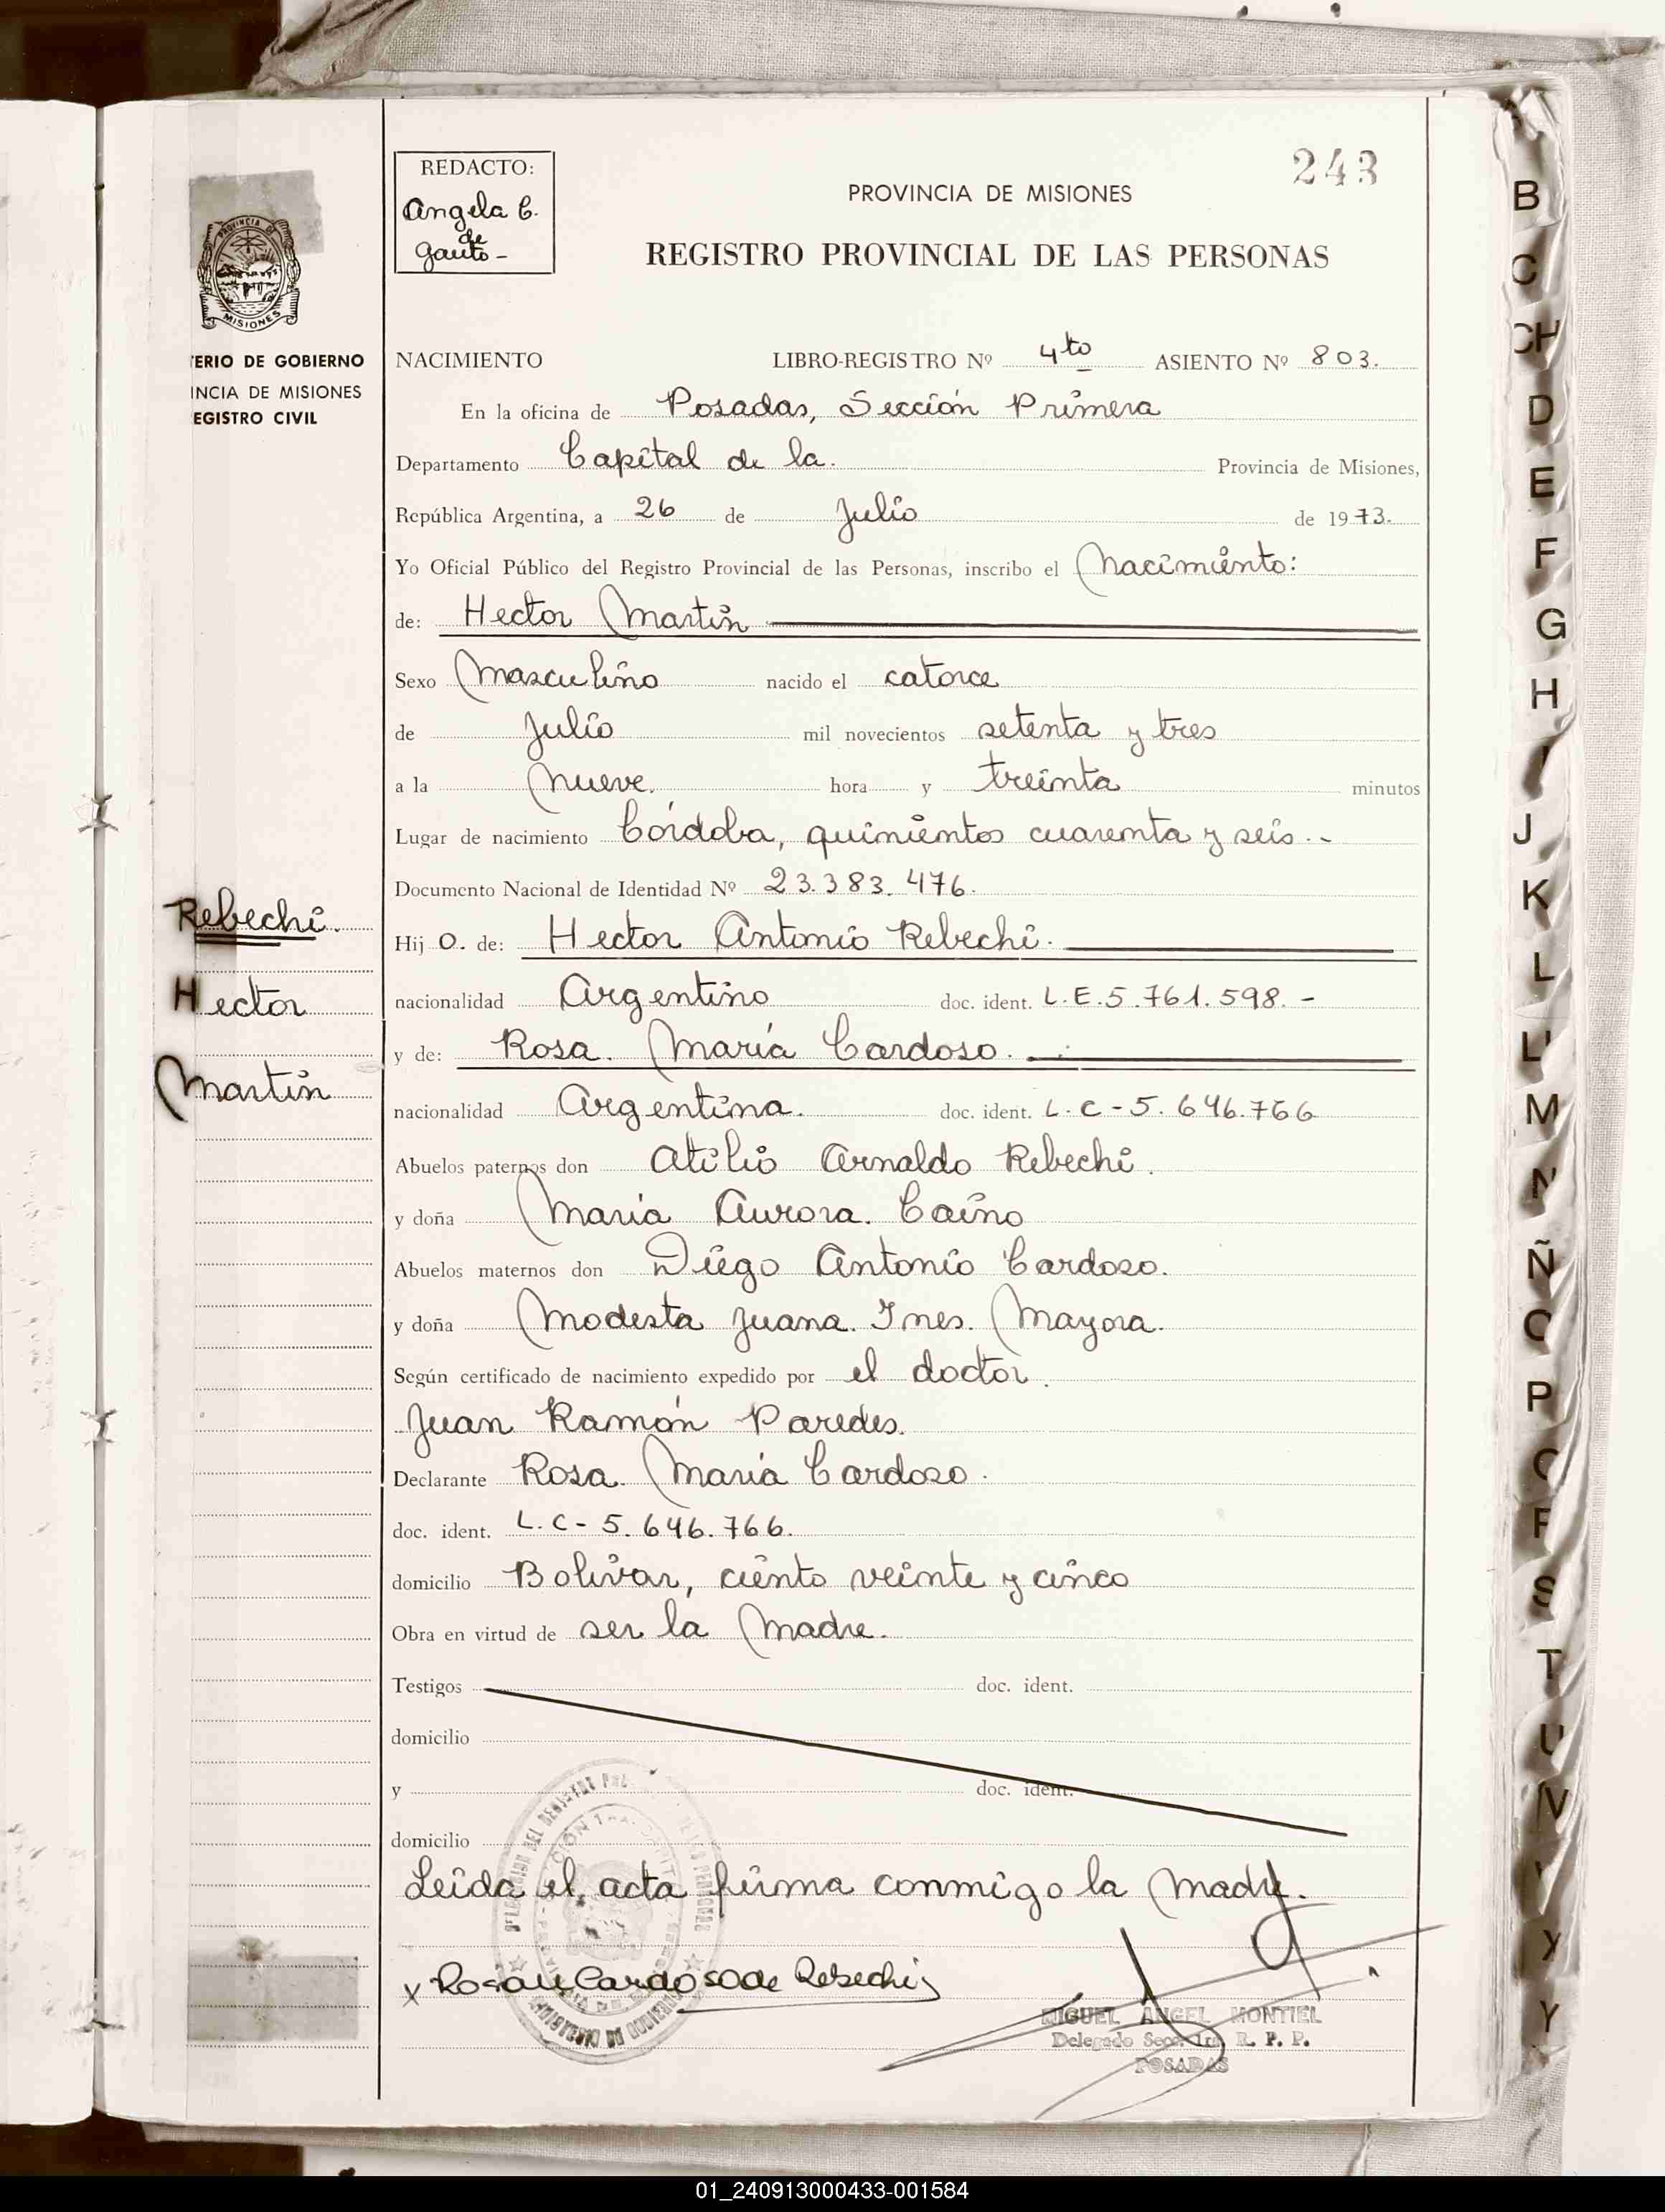 REDACTO:
Angela C.
de
Gauto -
243
PROVINCIA DE MISIONES
REGISTRO PROVINCIAL DE LAS PERSONAS
PROVINCIA DE
MISIONES
TERIO DE GOBIERNO
INCIA DE MISIONES
EGISTRO CIVIL
NACIMIENTO LIBRO-REGISTRO Nº 4to ASIENTO Nº 803.
En la oficina de Posadas, Sección Primera
Departamento Capital de la. Provincia de Misiones,
República Argentina, a 26 de Julio de 1973.
Yo Oficial Público del Registro Provincial de las Personas, inscribo el Nacimiento:
de: Hector Martin
Sexo Masculino nacido el catorce
de Julio mil novecientos setenta y tres
a la Nueve. hora y treinta minutos
Lugar de nacimiento Córdoba, quinientos cuarenta y seis..-
Documento Nacional de Identidad Nº 23.383.476.
Rebechi.
Hector
Martin
Hij o. de: Hector Antonio Rebechi.
nacionalidad Argentino doc. ident. L.E.5.761.598.-
y de: Rosa. María Cardoso.
nacionalidad Argentina. doc. ident. L.C-5.646.766
Abuelos paternos don Atilio Arnaldo Rebechi.
y doña Maria Aurora. Caino
Abuelos maternos don Diego Antonio Cardozo.
y doña Modesta Juana. Ines. Mayora.
Según certificado de nacimiento expedido por el doctor.
Juan Ramón Paredes.
Declarante Rosa. María Cardozo.
doc. ident. L.C-5.646.766.
domicilio Bolivar, ciento veinte y cinco
Obra en virtud de ser la Madre.
Testigos doc. ident.
domicilio
y doc. ident.
domicilio
Leida el acta firma conmigo la Madre.
x Rosa M Cardoso de Rebechi
MIGUEL ANGEL MONTIEL
Delegado Secc. 1ra R. P. P.
POSADAS
B
C
CH
D
E
F
G
H
I
J
K
L
LL
M
N
Ñ
O
P
Q
R
S
T
U
V
X
Y
01_240913000433-001584